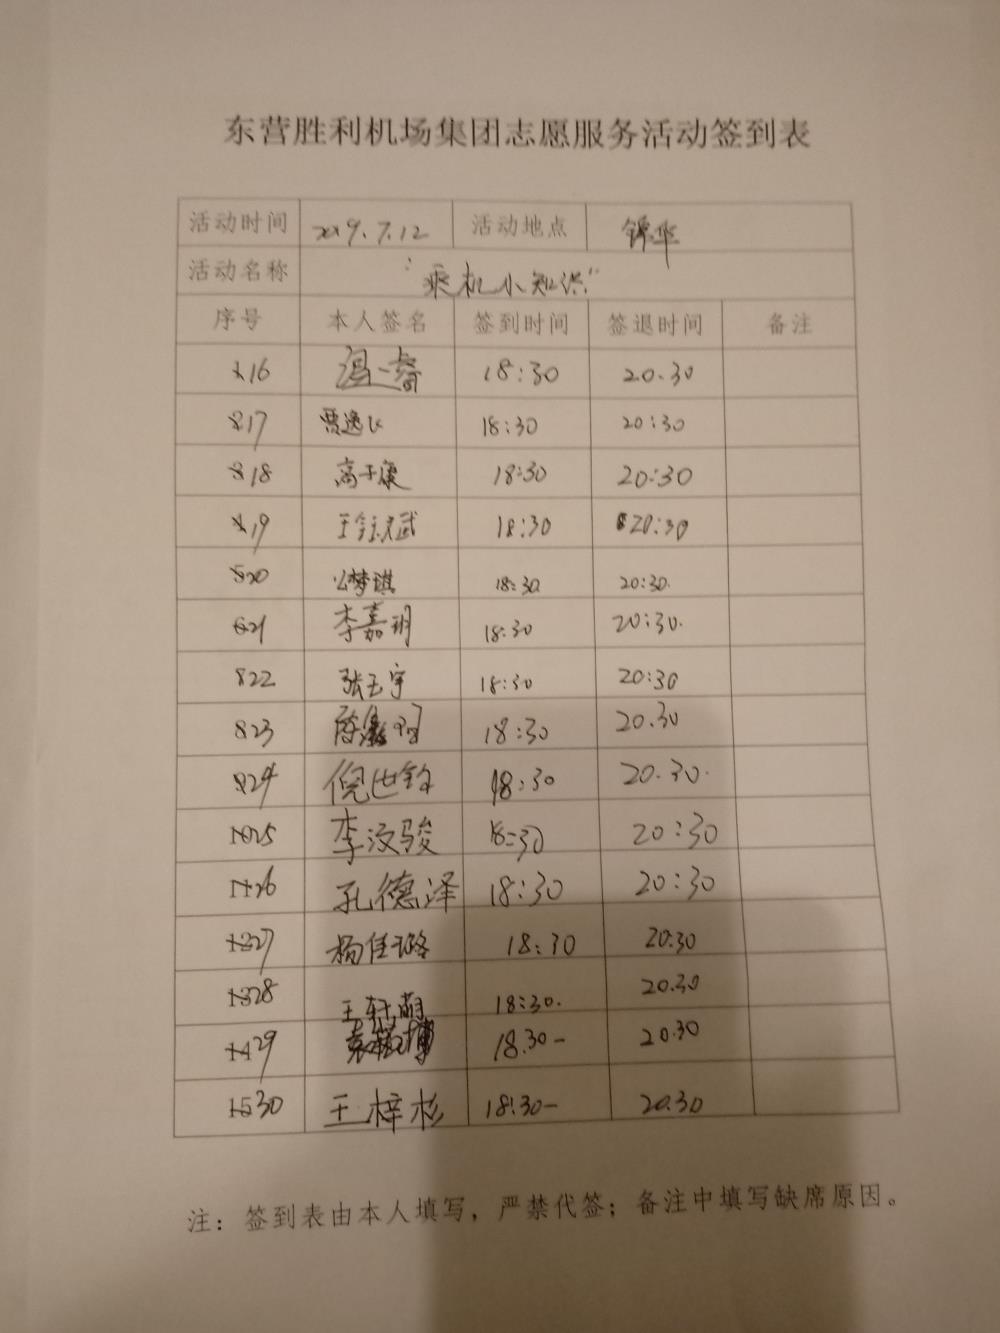 东营胜利机场集团志愿服务活动签到表
活动时间 2019.7.12 活动地点 锦华
活动名称 "乘机小知识"
序号 本人签名 签到时间 签退时间 备注
16 冯一睿 18:30 20.30
17 贾逸飞 18:30 20:30
18 高子康 18:30 20:30
19 王钰斌 18:30 20:30
20 公梦琪 18:30 20:30.
21 李嘉玥 18:30 20:30.
22 张玉宇 18:30 20:30
23 18:30 20.30
24 倪世钰 18:30 20.30.
25 李汶骏 18:30 20:30
26 孔德泽 18:30 20:30
27 杨佳璐 18:30 20:30
28 王轩萌 18:30. 20.30
29 18.30- 20.30
30 王梓杉 18:30- 20.30
注：签到表由本人填写，严禁代签；备注中填写缺席原因。